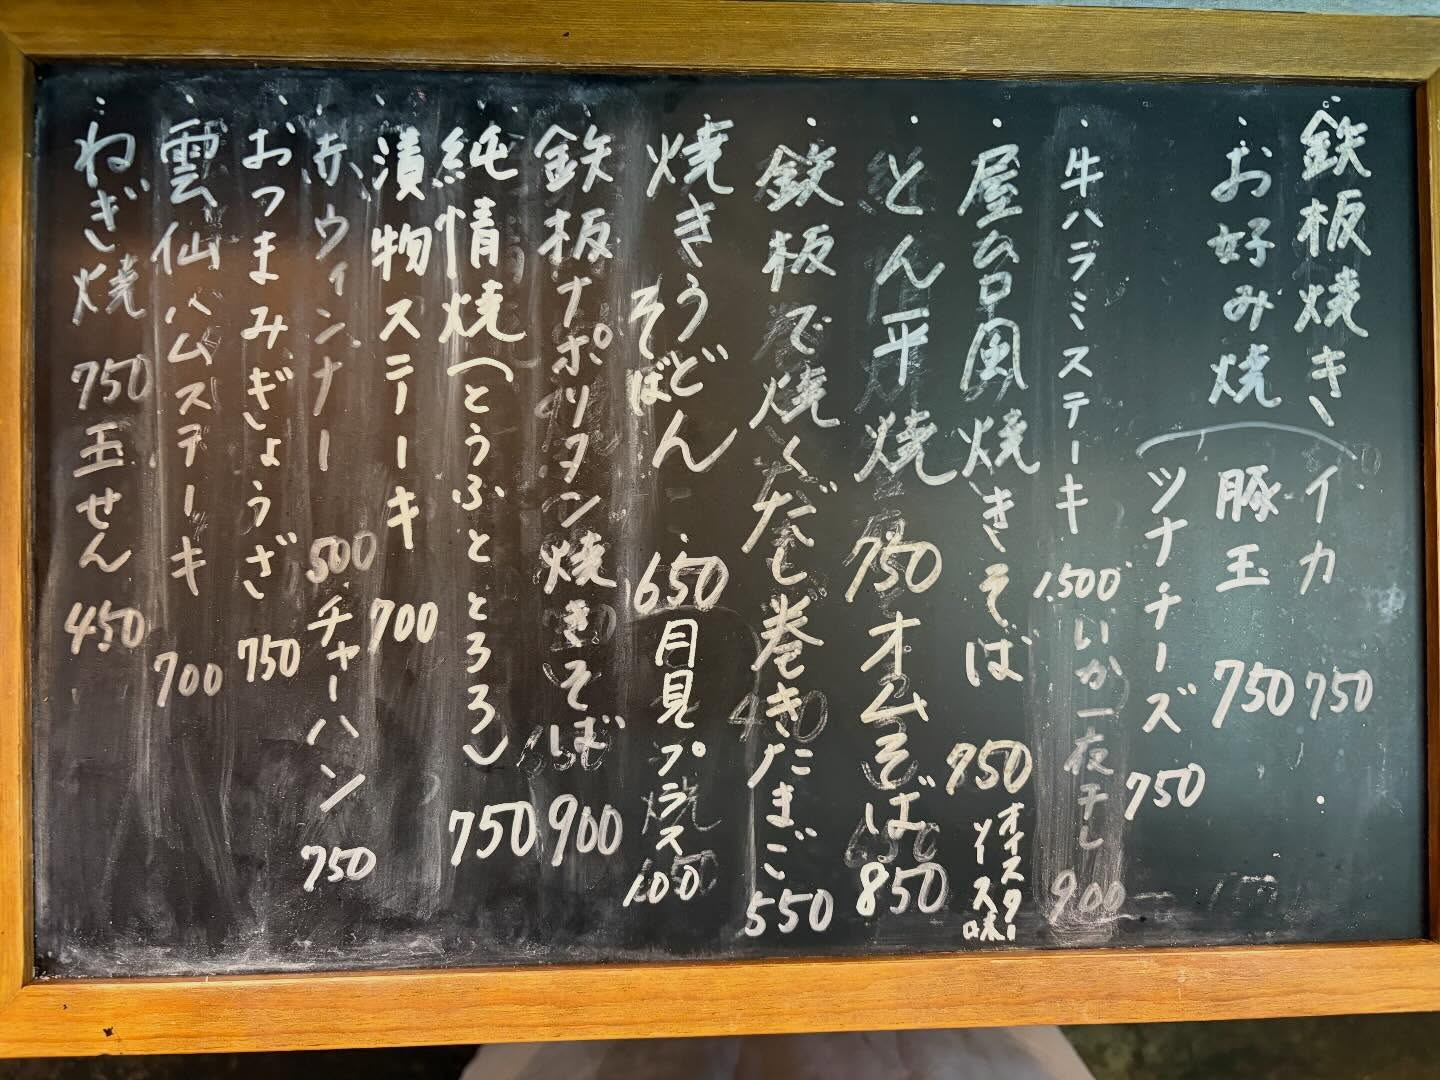 ・鉄板焼き イカ 750
・お好み焼 豚玉 750
ツナチーズ 750
・牛ハラミステーキ 1.500 いか一夜干し 900
・屋台風焼きそば 950 オイスターソース味
・とん平焼 750 オムそば 850
・鉄板で焼くだし巻きたまご 550
・焼きうどん そば 650 月見プラス 100
・鉄板ナポリタン焼きそば 900
・純情焼(とうふととろろ) 750
・漬物ステーキ 700
・赤ウィンナー 500 ・チャーハン 750
・おつまみぎょうざ 750
・雲仙ハムステーキ 700
・ねぎ焼 750 玉せん 450